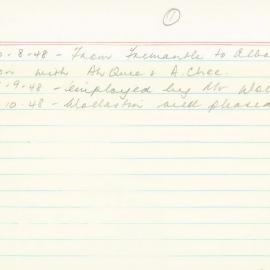 11
-8-48 - From Fremantle to Alba
with Ah Quee & A. Chee.
-9-48 - employed by Mr Wol
10.48 - Wollaston well pleased